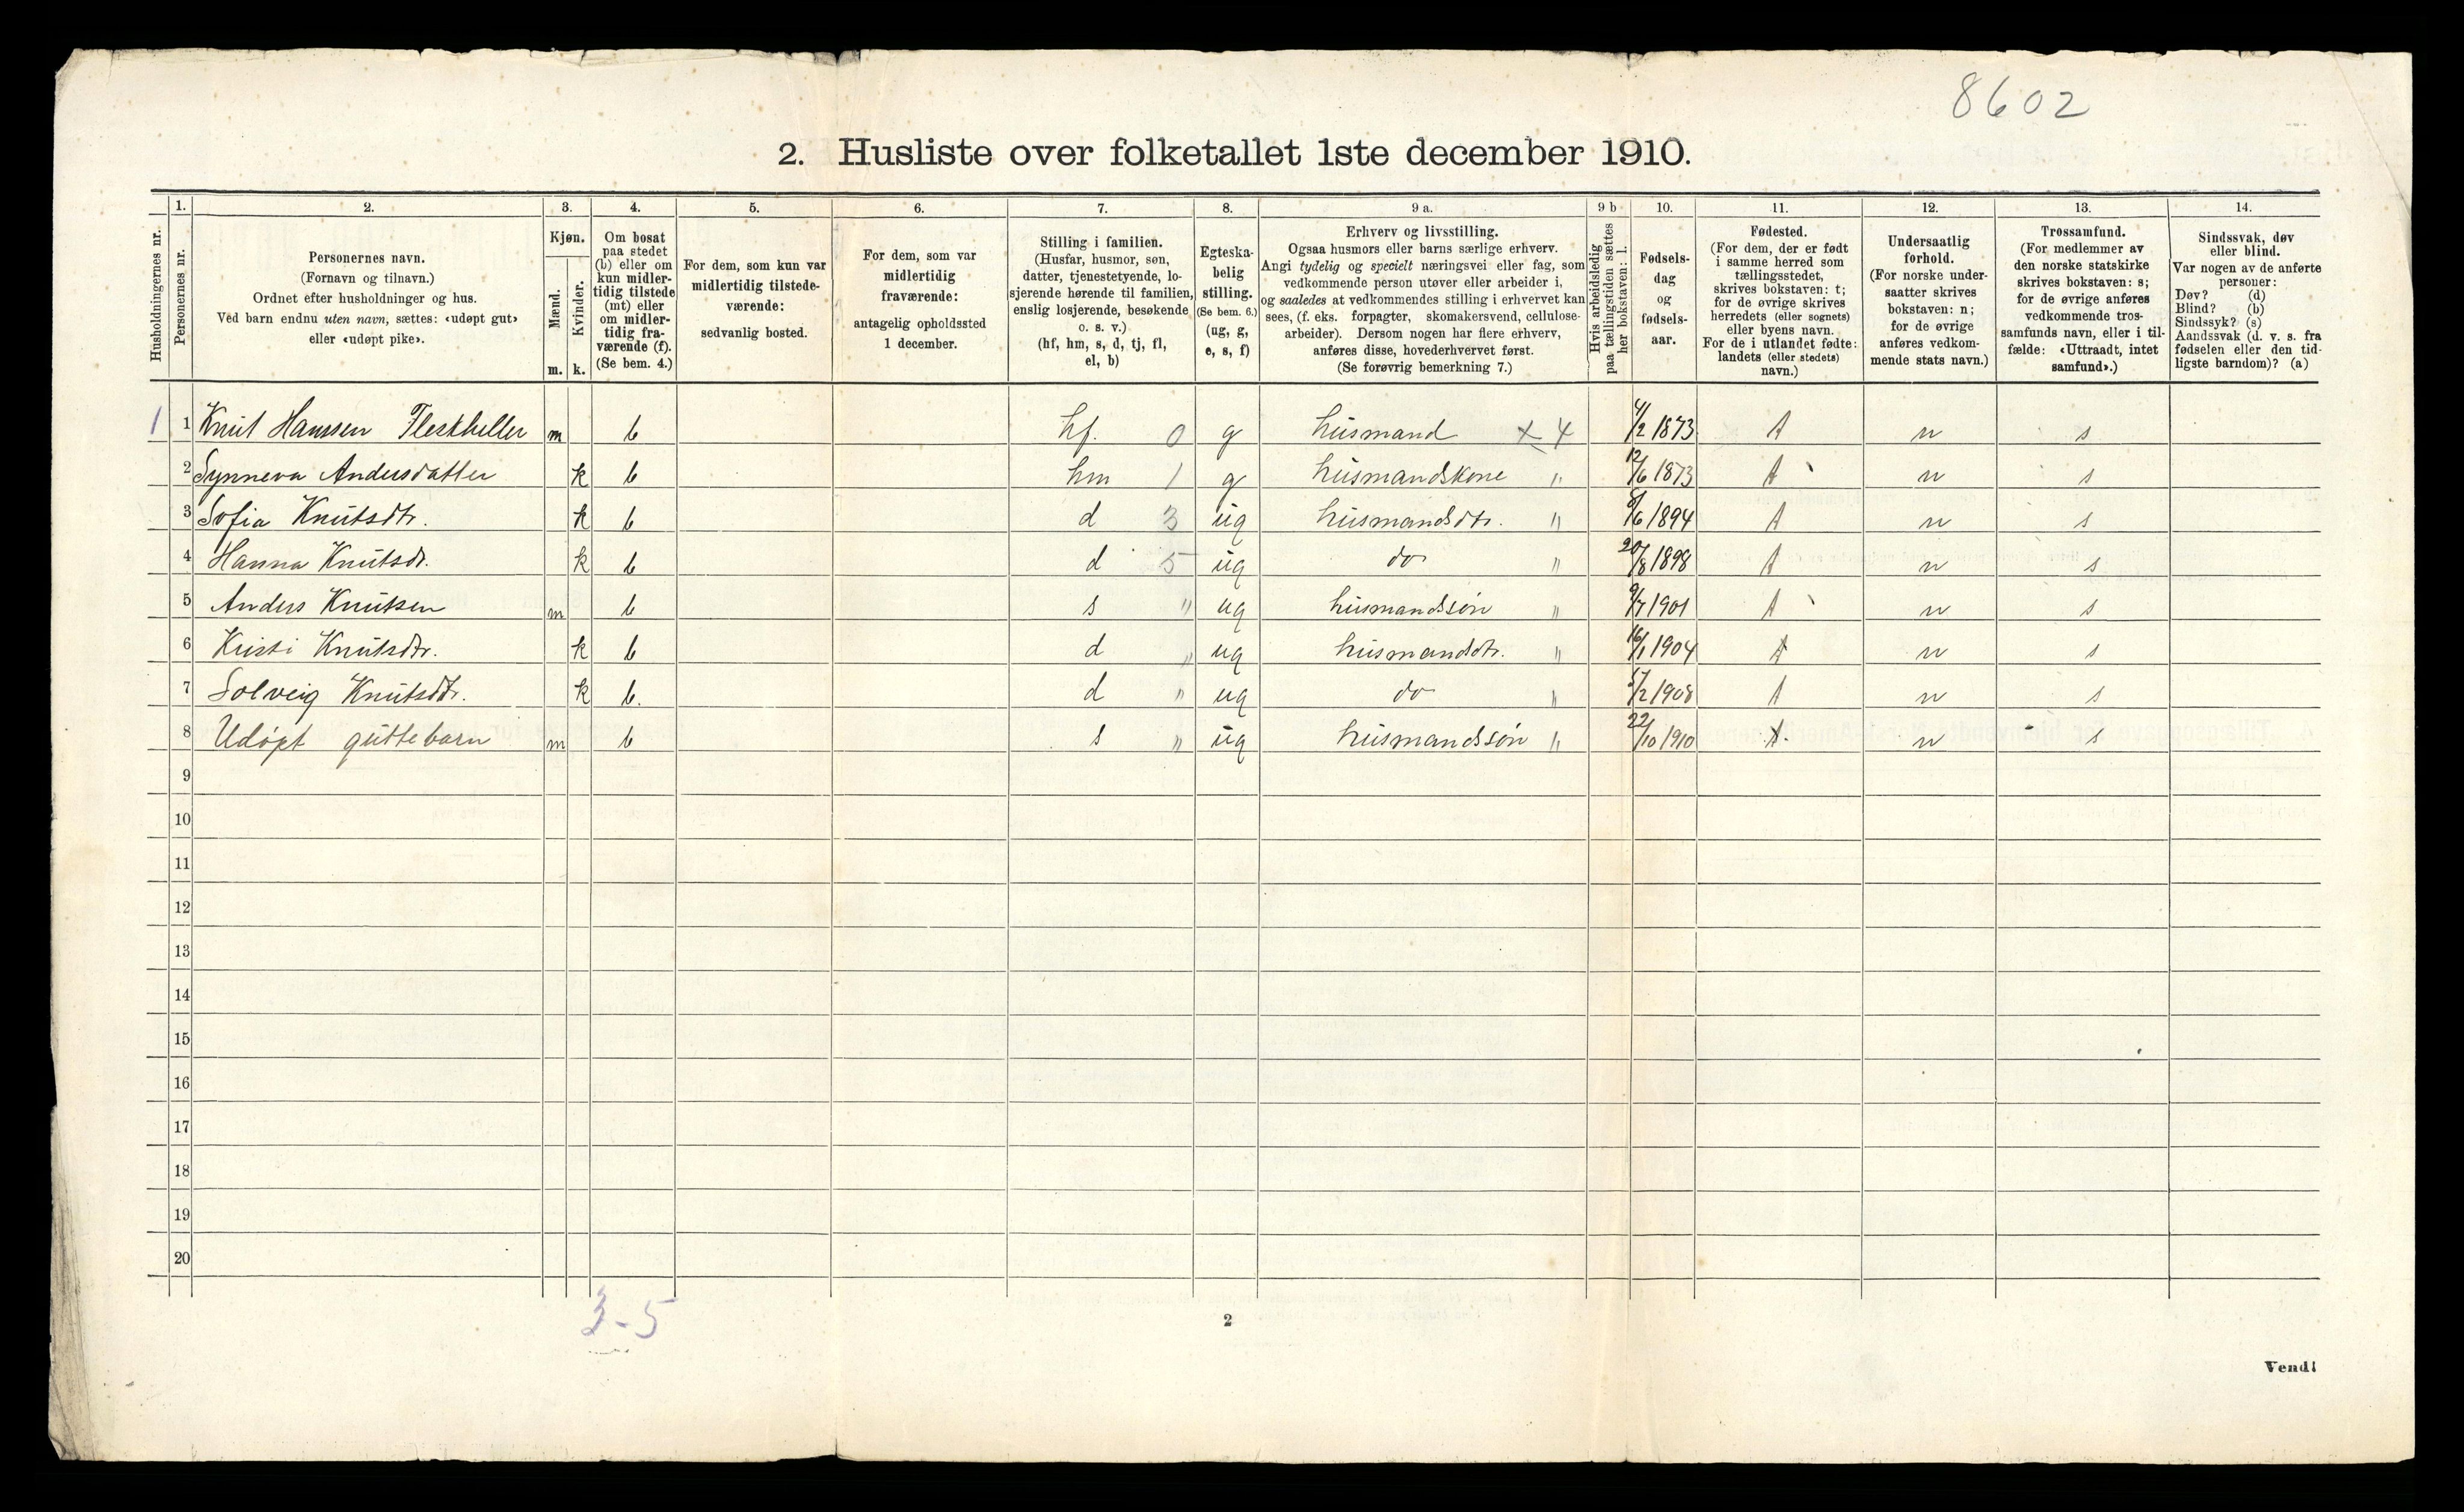 8602
2. Husliste over folketallet 1ste december 1910.
Husholdningernes nr.
1.
Personernes nr.
2.
Personernes navn.
(Fornavn og tilnavn.)
Ordnet efter husholdninger og hus.
Ved barn endnu uten navn, sættes: «udøpt gut»
eller «udøpt pike».
3.
Kjøn.
Mænd.
m.
Kvinder.
k.
4.
Om bosat
paa stedet
(b) eller om
kun midler-
tidig tilstede
(mt) eller
om midler-
tidig fra-
værende (f).
(Se bem. 4.)
5.
For dem, som kun var
midlertidig tilstede-
værende:
sedvanlig bosted.
6.
For dem, som var
midlertidig
fraværende:
antagelig opholdssted
1 december.
7.
Stilling i familien.
(Husfar, husmor, søn,
datter, tjenestetyende, lo-
sjerende hørende til familien,
enslig losjerende, besøkende
o. s. v.)
(hf, hm, s, d, tj, fl,
el, b)
8.
Egteska-
belig
stilling.
(Se bem. 6.)
(ug, g,
e, s, f)
9 a.
Erhverv og livsstilling.
Ogsaa husmors eller barns særlige erhverv.
Angi tydelig og specielt næringsvei eller fag, som
vedkommende person utøver eller arbeider i,
og saaledes at vedkommendes stilling i erhvervet kan
sees, (f. eks. forpagter, skomakersvend, cellulose-
arbeider). Dersom nogen har flere erhverv,
anføres disse, hovederhvervet først.
(Se forøvrig bemerkning 7.)
9 b
Hvis arbeidsledig
paa tællingstiden sættes
her bokstaven: l.
10.
Fødsels-
dag
og
fødsels-
aar.
11.
Fødested.
(For dem, der er født
i samme herred som
tællingsstedet,
skrives bokstaven: t;
for de øvrige skrives
herredets (eller sognets)
eller byens navn.
For de i utlandet fødte:
landets (eller stedets)
navn.)
12.
Undersaatlig
forhold.
(For norske under-
saatter skrives
bokstaven: n;
for de øvrige
anføres vedkom-
mende stats navn.)
13.
Trossamfund.
(For medlemmer av
den norske statskirke
skrives bokstaven: s;
for de øvrige anføres
vedkommende tros-
samfunds navn, eller i til-
fælde: «Uttraadt, intet
samfund».)
14.
Sindssvak, døv
eller blind.
Var nogen av de anførte
personer:
Døv? (d)
Blind? (b)
Sindssyk? (s)
Aandssvak (d. v. s. fra
fødselen eller den tid-
ligste barndom)? (a)
1 1 Knut Hanssen Fleskheller m b hf. 0 g husmand x 4 4/2 1873 t n s
2 Synneva Andersdatter k b hm 1 g husmandskone " 12/6 1873 t n s
3 Sofia Knutsdtr. k b d 3 ug husmandsdtr. " 8/6 1894 t n s
4 Hanna Knutsdr. k b d 5 ug do " 20/8 1898 t n s
5 Anders Knutsen m b s " ug husmandssøn " 9/7 1901 t n s
6 Kristi Knutsdtr. k b d " ug husmandsdtr. " 16/1 1904 t n s
7 Solveig Knutsdtr. k b. d " ug do " 1908 t n s
8 Udøpt guttebarn m b s " ug husmandssøn " 22/10 1910 t n s
9
10
11
12
13
14
15
16
17
18
19
20
3-5
2
Vend!